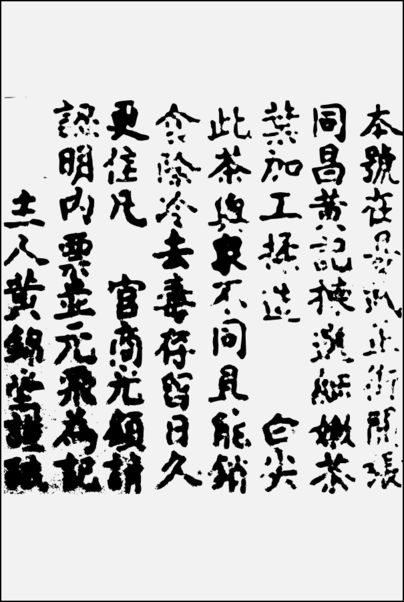 本號在正街開張
同昌黃記揀選細嫩茶
葉加工揉造 白尖
此茶與衆不同具能銷
食除冷去毒存留日久
更佳凡 官商光顧請
認明內票並元飛為記
主人黃錦堂謹